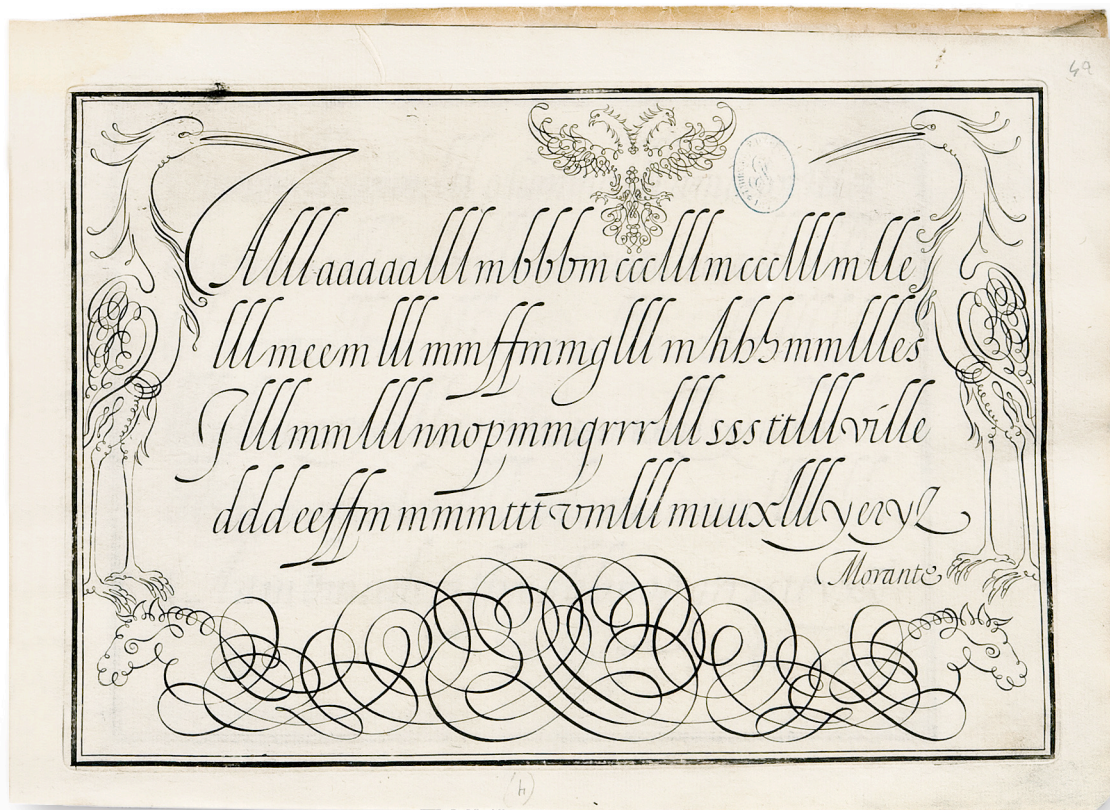 Alllaaaaalllmbbbmccclllmccclllmlle
lllmeemlllmmffmmglllmhhhmmlllles
Jlllmmlllnnopmmqrrrlllsssttlllville
dddeeffmmmmtttvmlllmuuxlllyeryz
Morante